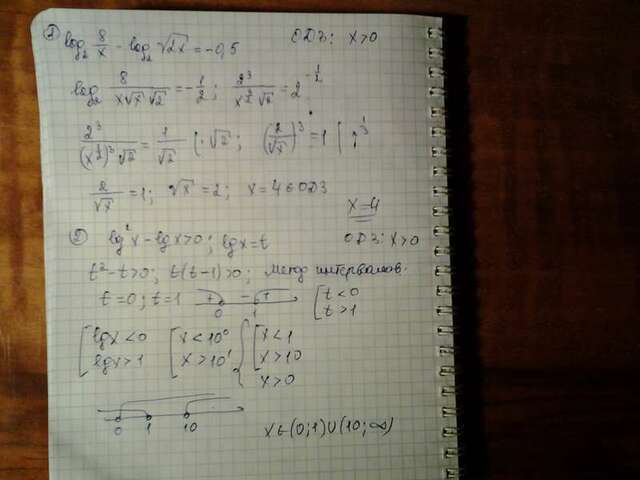 1) log₂ 8/x - log₂ √(2x) = -0,5   ОДЗ: x>0
log₂ 8/(x√x √2) = -1/2; 2³/(x^(3/2) √2) = 2^(-1/2)
2³/((x^(1/2))³ √2) = 1/√2 | ·√2; (2/√x)³ = 1 | ^(1/3)
2/√x = 1; √x = 2; x = 4 ∈ ОДЗ
x=4
2) lg²x - lgx>0; lgx=t   ОДЗ: x>0
t²-t>0; t(t-1)>0; метод интервалов.
t=0; t=1   + - +   0 1   [t<0 t>1
[lgx<0 lgx>1   [x<10⁰ x>10¹   {[x<1 x>10 x>0
0 1 10
x∈(0;1)∪(10;∞)